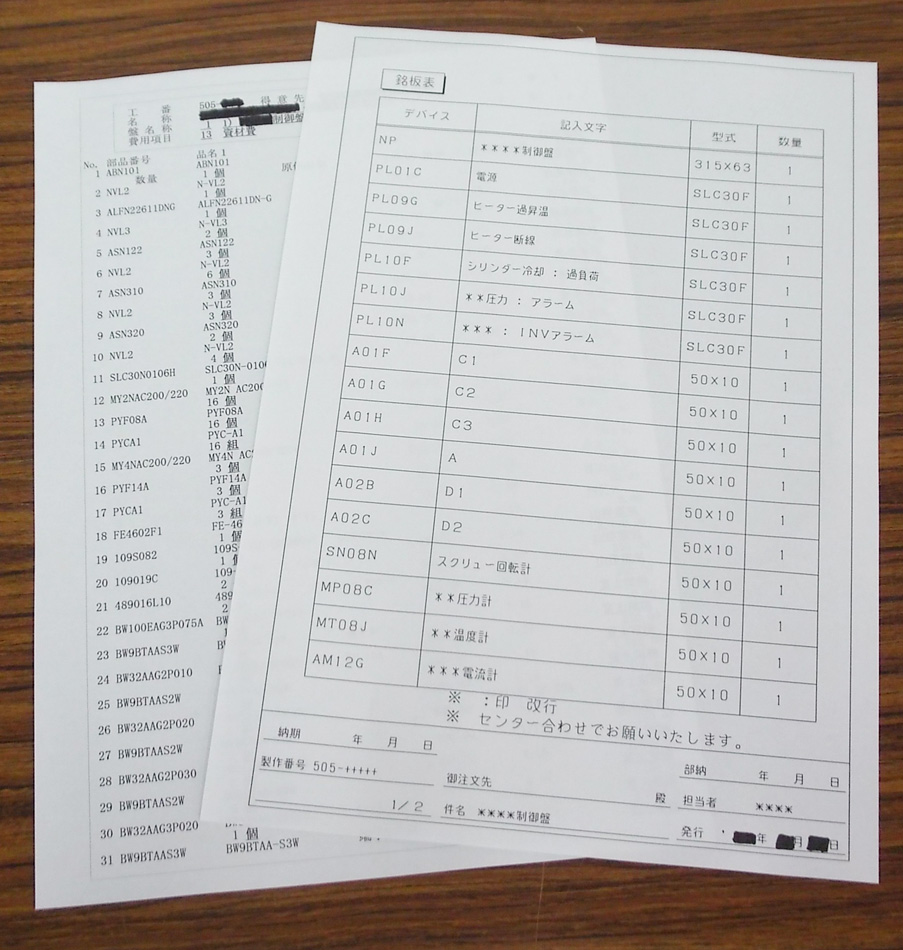 工番 505- 得意先
名称
盤名称 1 1) 制御盤
費用項目 13 資材費
No. 部品番号 品名1
数量
1 ABN101 ABN101
1 個
2 NVL2 N-VL2
1 個
3 ALFN22611DNG ALFN22611DN-G
1 個
4 NVL3 N-VL3
2 個
5 ASN122 ASN122
3 個
6 NVL2 N-VL2
6 個
7 ASN310 ASN310
3 個
8 NVL2 N-VL2
3 個
9 ASN320 ASN320
2 個
10 NVL2 N-VL2
4 個
11 SLC30N0106H SLC30N-0106
1 個
12 MY2NAC200/220 MY2N AC200
16 個
13 PYF08A PYF08A
16 個
14 PYCA1 PYC-A1
16 組
15 MY4NAC200/220 MY4N
3 個
16 PYF14A PYF14A
3 個
17 PYCA1 PYC-A1
3 組
18 FE4602F1 FE-46
1 個
19 109S082 109S
1
20 109019C 109-
2
21 489016L10 489
2
22 BW100EAG3P075A BW
23 BW9BTAAS3W
24 BW32AAG2P010
25 BW9BTAAS2W
26 BW32AAG2P020
27 BW9BTAAS2W
28 BW32AAG2P030
29 BW9BTAAS2W
30 BW32AAG3P020
1 個
31 BW9BTAAS3W BW9BTAA-S3W
銘板表
デバイス 記入文字 型式 数量
NP ****制御盤 315×63 1
PL01C 電源 SLC30F 1
PL09G ヒーター過昇温 SLC30F 1
PL09J ヒーター断線 SLC30F 1
PL10F シリンダー冷却 : 過負荷 SLC30F 1
PL10J **圧力 : アラーム SLC30F 1
PL10N *** : INVアラーム SLC30F 1
A01F C1 50×10 1
A01G C2 50×10 1
A01H C3 50×10 1
A01J A 50×10 1
A02B D1 50×10 1
A02C D2 50×10 1
SN08N スクリュー回転計 50×10 1
MP08C **圧力計 50×10 1
MT08J **温度計 50×10 1
AM12G ***電流計 50×10 1
※ :印 改行
※ センター合わせでお願いいたします。
納期 年 月 日 部納 年 月 日
製作番号 505-+++++ 御注文先 殿 担当者 ****
1/2 件名 ****制御盤 発行 ' 年 月 日